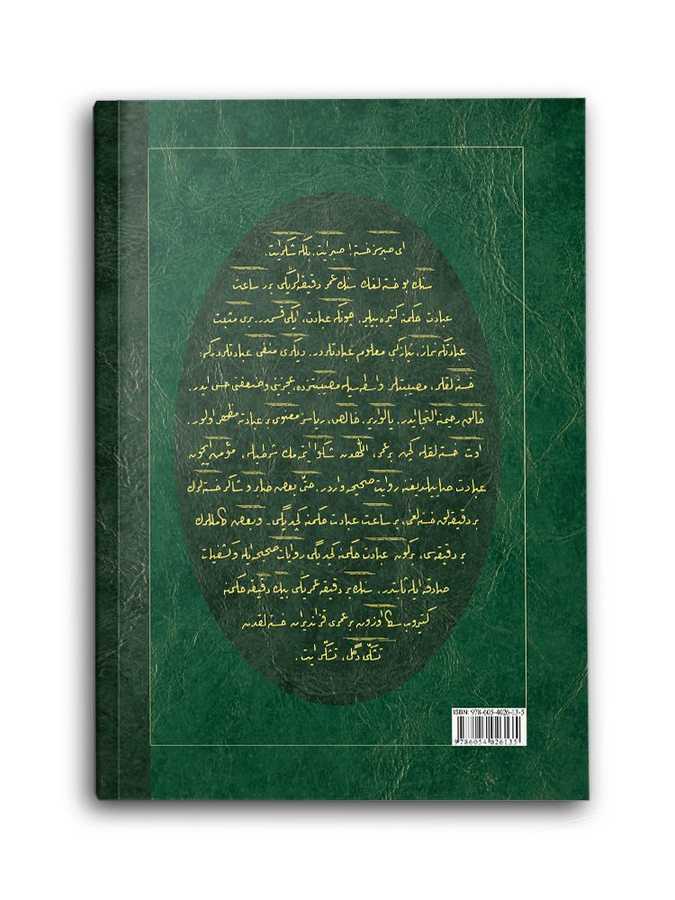 ای صبرسز خسته! صبر ایت، بلكه شكر ایت.
سنك بو خسته‌لغك سنك عمر دقیقه‌لریكی برر ساعت
عبادت حكمنه كتیره بیلیر. چونكه عبادت، ایكی قسمدر. بری مثبت
عبادتكه نماز، نیاز كبی معلوم عبادتلردر. دیكری منفی عبادتلردركه:
خسته‌لقلر، مصیبتلر واسطه‌سیله مصیبتزده، عجزینی و ضعفنی حس ایدر.
خالق رحیمنه التجا ایدر. یالواریر. خالص، ریاسز معنوی بر عبادته مظهر اولور.
اوت خسته‌لقله كچن بر عمر، اللّٰهدن شكوا ایتمه‌مك شرطیله، مؤمن ایچون
عبادت صاییلدیغنه روایت صحیحه واردر. حتّی بعض صابر و شاكر خسته‌لرك
بر دقیقه‌لق خسته‌لغی، بر ساعت عبادت حكمنه كچدیگی. و بعض كاملارك
بر دقیقه‌سی، بر كون عبادت حكمنه كچدیگی روایات صحیحه ایله و كشفیات
صادقه ایله ثابتدر. سنك بر دقیقه عمریكی بیك دقیقه حكمنه
كتیروب سكا اوزون بر عمری قزاندیران خسته‌لقدن
تشكّی دگل، تشكّر ایت.
ISBN: 978-605-4026-13-5
9 786054 026135